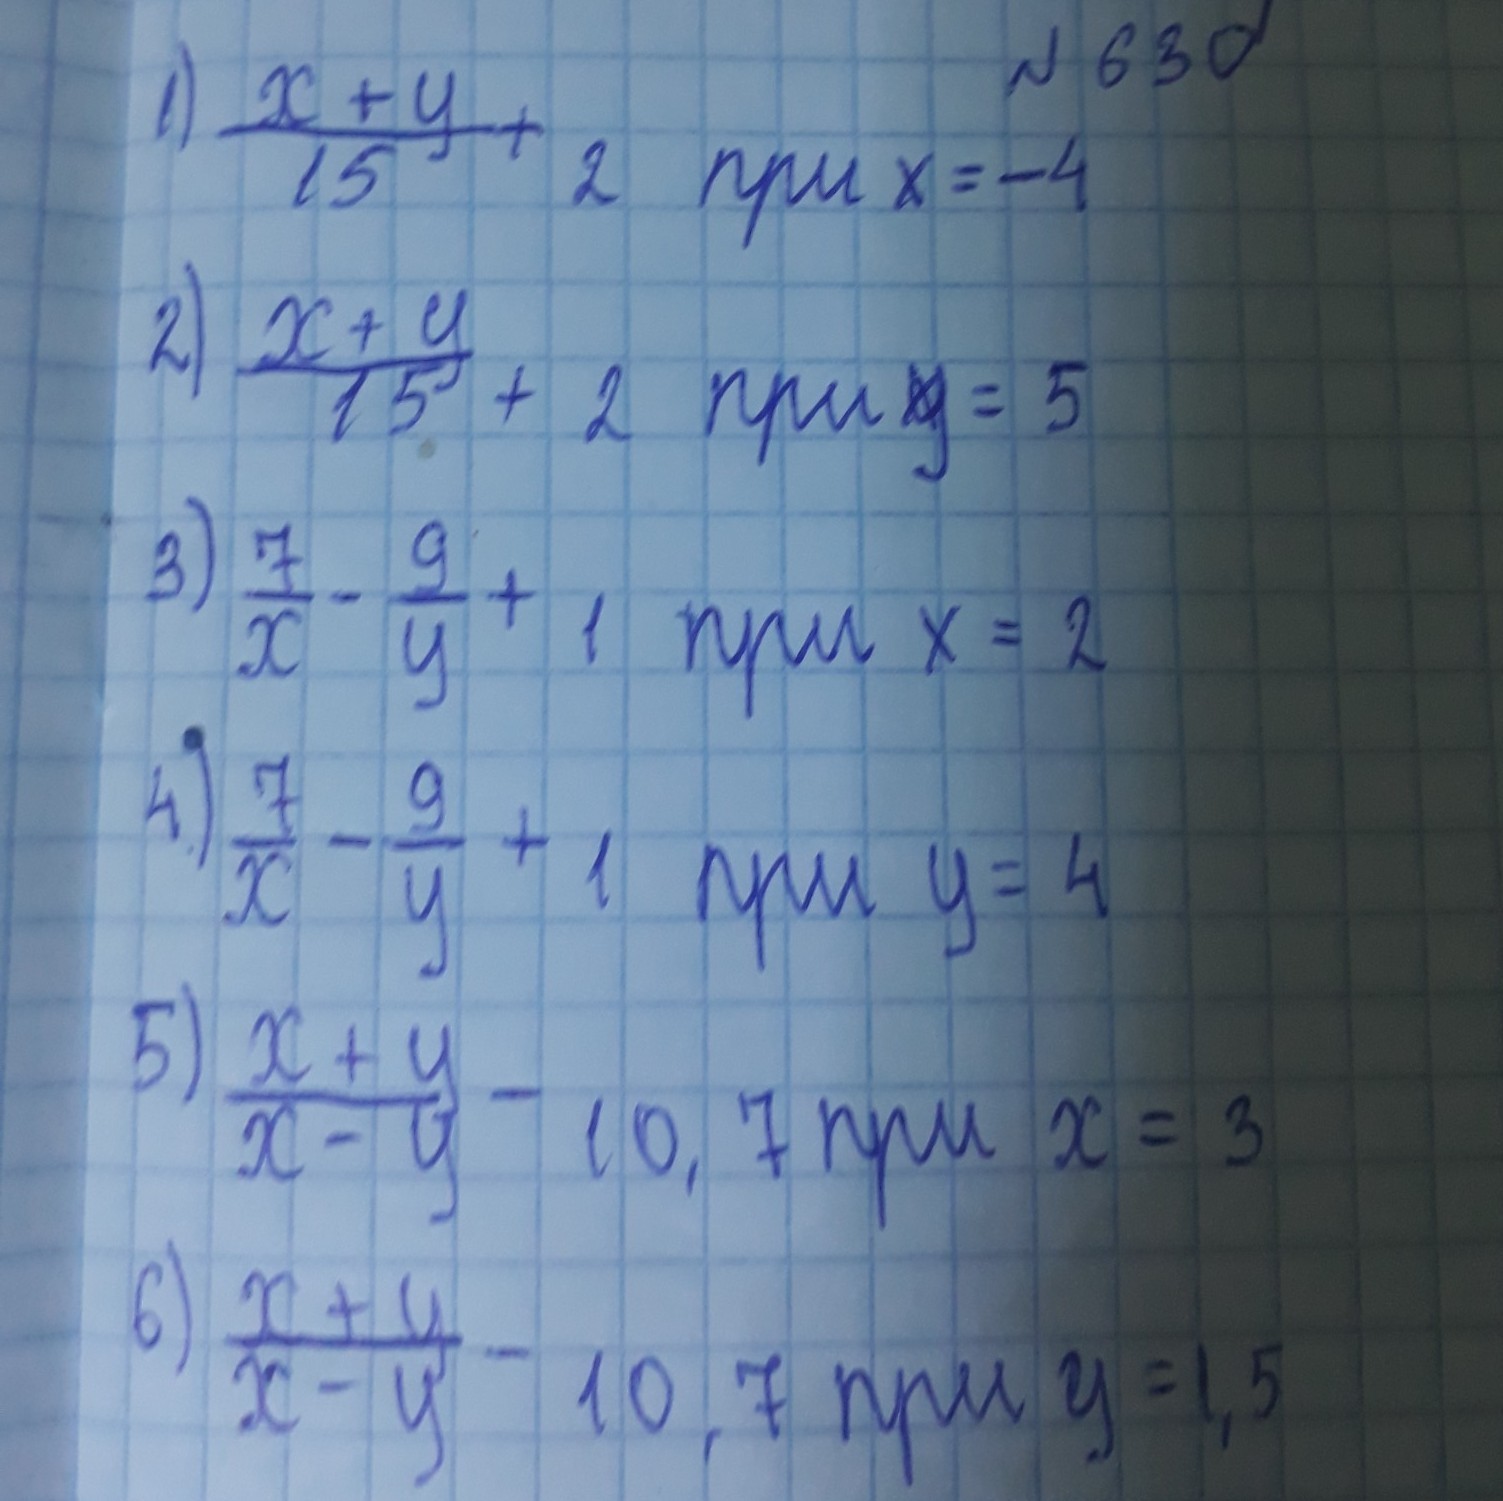 № 630
1) x + y / 15 + 2 при x = -4
2) x + y / 15 + 2 при y = 5
3) 7/x - 9/y + 1 при x = 2
4) 7/x - 9/y + 1 при y = 4
5) x + y / x - y - 10,7 при x = 3
6) x + y / x - y - 10,7 при y = 1,5